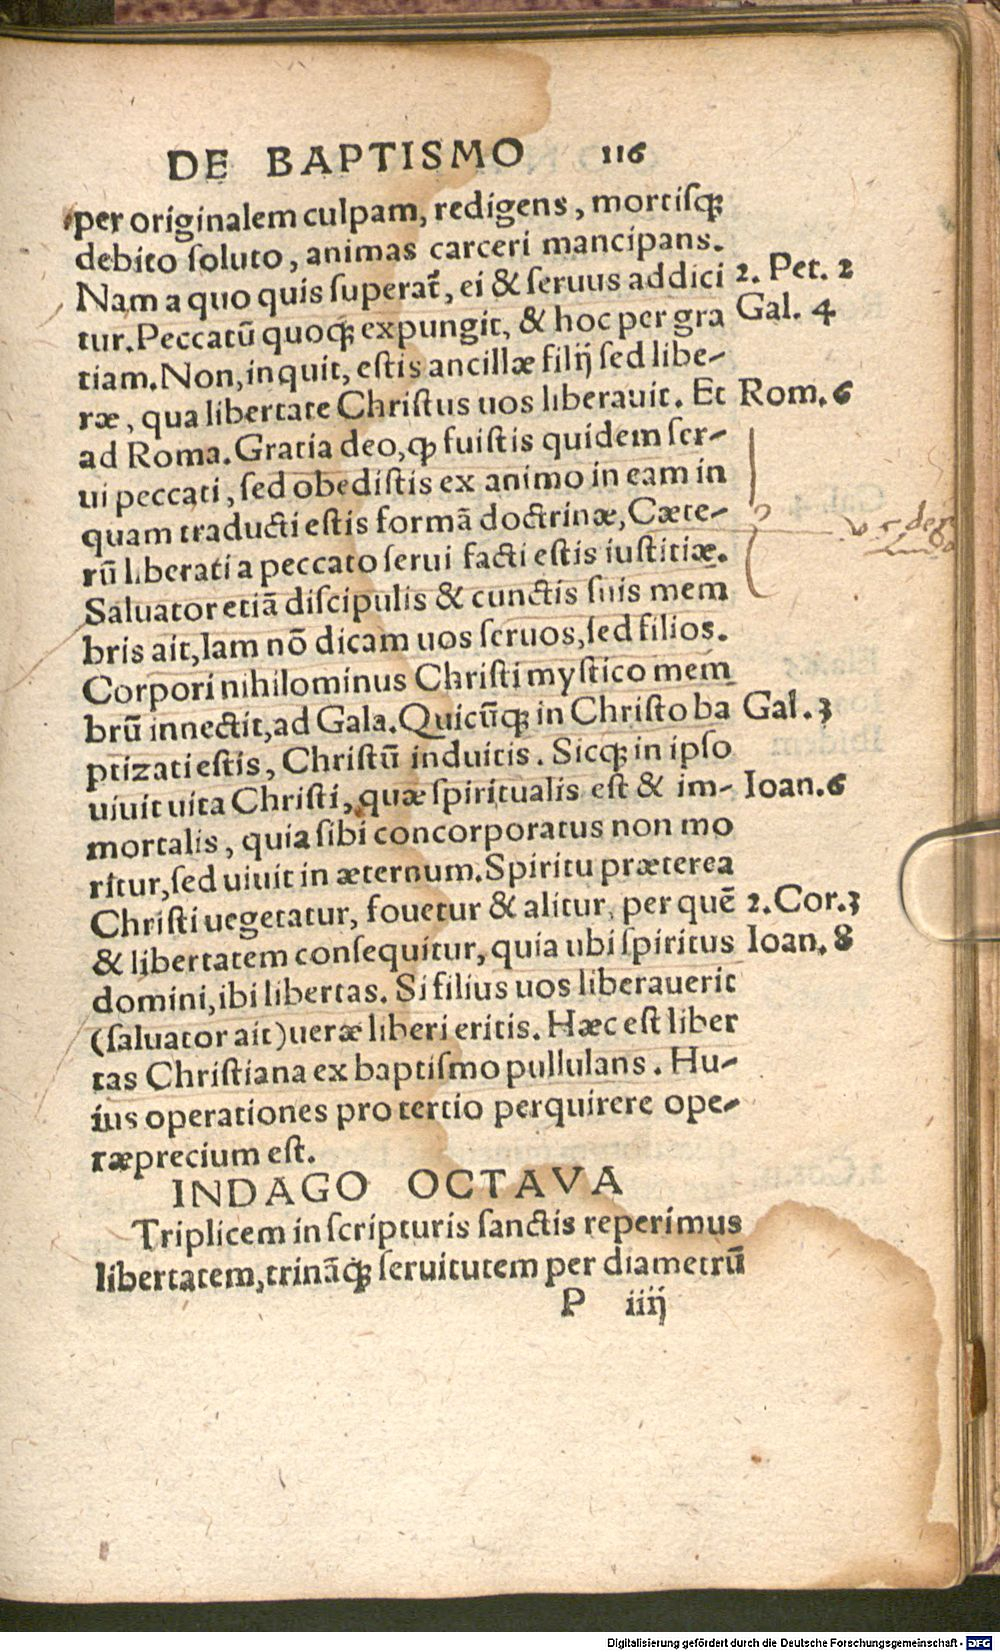 DE BAPTISMO 116
per originalem culpam, redigens, mortiſq́;
debito ſoluto, animas carceri mancipans.
Nam a quo quis ſuperat̃, ei & ſeruus addici 2. Pet. 2
tur. Peccatũ quoq́; expungit, & hoc per gra Gal. 4
tiam. Non, inquit, eſtis ancillæ filij ſed libe-
ræ, qua libertate Chriſtus uos liberauit. Et Rom. 6
ad Roma. Gratia deo, ꝙ fuiſtis quidem ſer-
ui peccati, ſed obediſtis ex animo in eam in
quam traducti eſtis formã doctrinæ, Cæte-
rũ liberati a peccato ſerui facti eſtis iuſtitiæ.
Saluator etiã diſcipulis & cunctis ſuis mem
bris ait, Iam nõ dicam uos ſeruos, ſed filios.
Corpori nihilominus Chriſti myſtico mem
brũ innectit, ad Gala. Quicũq; in Chriſto ba Gal. 3
ptizati eſtis, Chriſtũ induitis. Sicq; in ipſo
uiuit uita Chriſti, quæ ſpiritualis eſt & im- Ioan. 6
mortalis, quia ſibi concorporatus non mo
ritur, ſed uiuit in æternum. Spiritu præterea
Chriſti uegetatur, fouetur & alitur, per quẽ 2. Cor. 3
& libertatem conſequitur, quia ubi ſpiritus Ioan. 8
domini, ibi libertas. Si filius uos liberauerit
(ſaluator ait) ueræ liberi eritis. Hæc eſt liber
tas Chriſtiana ex baptiſmo pullulans. Hu-
ius operationes pro tertio perquirere ope-
ræprecium eſt.
INDAGO OCTAVA
Triplicem in ſcripturis ſanctis reperimus
libertatem, trinãq́; ſeruitutem per diametrũ
P iiij
Digitalisierung gefördert durch die Deutsche Forschungsgemeinschaft - DFG